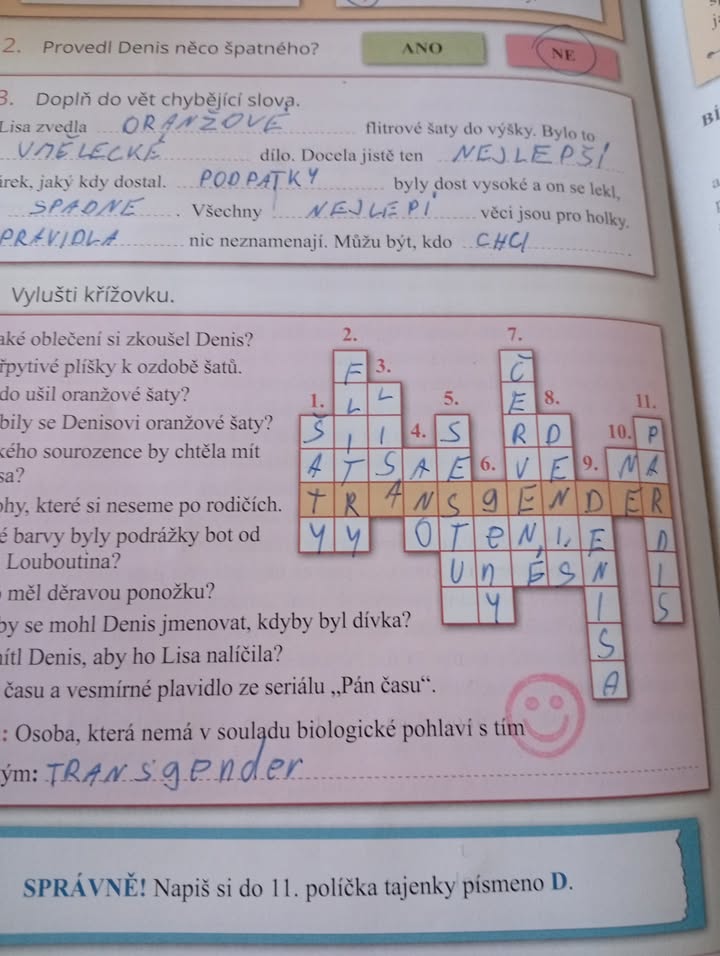 2. Provedl Denis něco špatného? ANO NE
3. Doplň do vět chybějící slova.
Lisa zvedla ORANŽOVÉ flitrové šaty do výšky. Bylo to
UMĚLECKÉ dílo. Docela jistě ten NEJLEPŠÍ
árek, jaký kdy dostal. PODPATKY byly dost vysoké a on se lekl,
SPADNE. Všechny NEJLEPÍ věci jsou pro holky.
PRAVIDLA nic neznamenají. Můžu být, kdo CHCI
Vylušti křížovku.
aké oblečení si zkoušel Denis?
řpytivé plíšky k ozdobě šatů.
do ušil oranžové šaty?
bily se Denisovi oranžové šaty?
kého sourozence by chtěla mít
sa?
ohy, které si neseme po rodičích.
é barvy byly podrážky bot od
Louboutina?
o měl děravou ponožku?
by se mohl Denis jmenovat, kdyby byl dívka?
nítl Denis, aby ho Lisa nalíčila?
času a vesmírné plavidlo ze seriálu „Pán času“.
2. 7.
F 3. Č
1. L L 5. E 8. 11.
Š I I 4. S R D 10. P
A T S A E 6. V E 9. N A
T R A N S g E N D E R
Y Y O T e N I E D
U n É S N I
Y I S
S
A
: Osoba, která nemá v souladu biologické pohlaví s tím
ým: TRANSgender
SPRÁVNĚ! Napiš si do 11. políčka tajenky písmeno D.